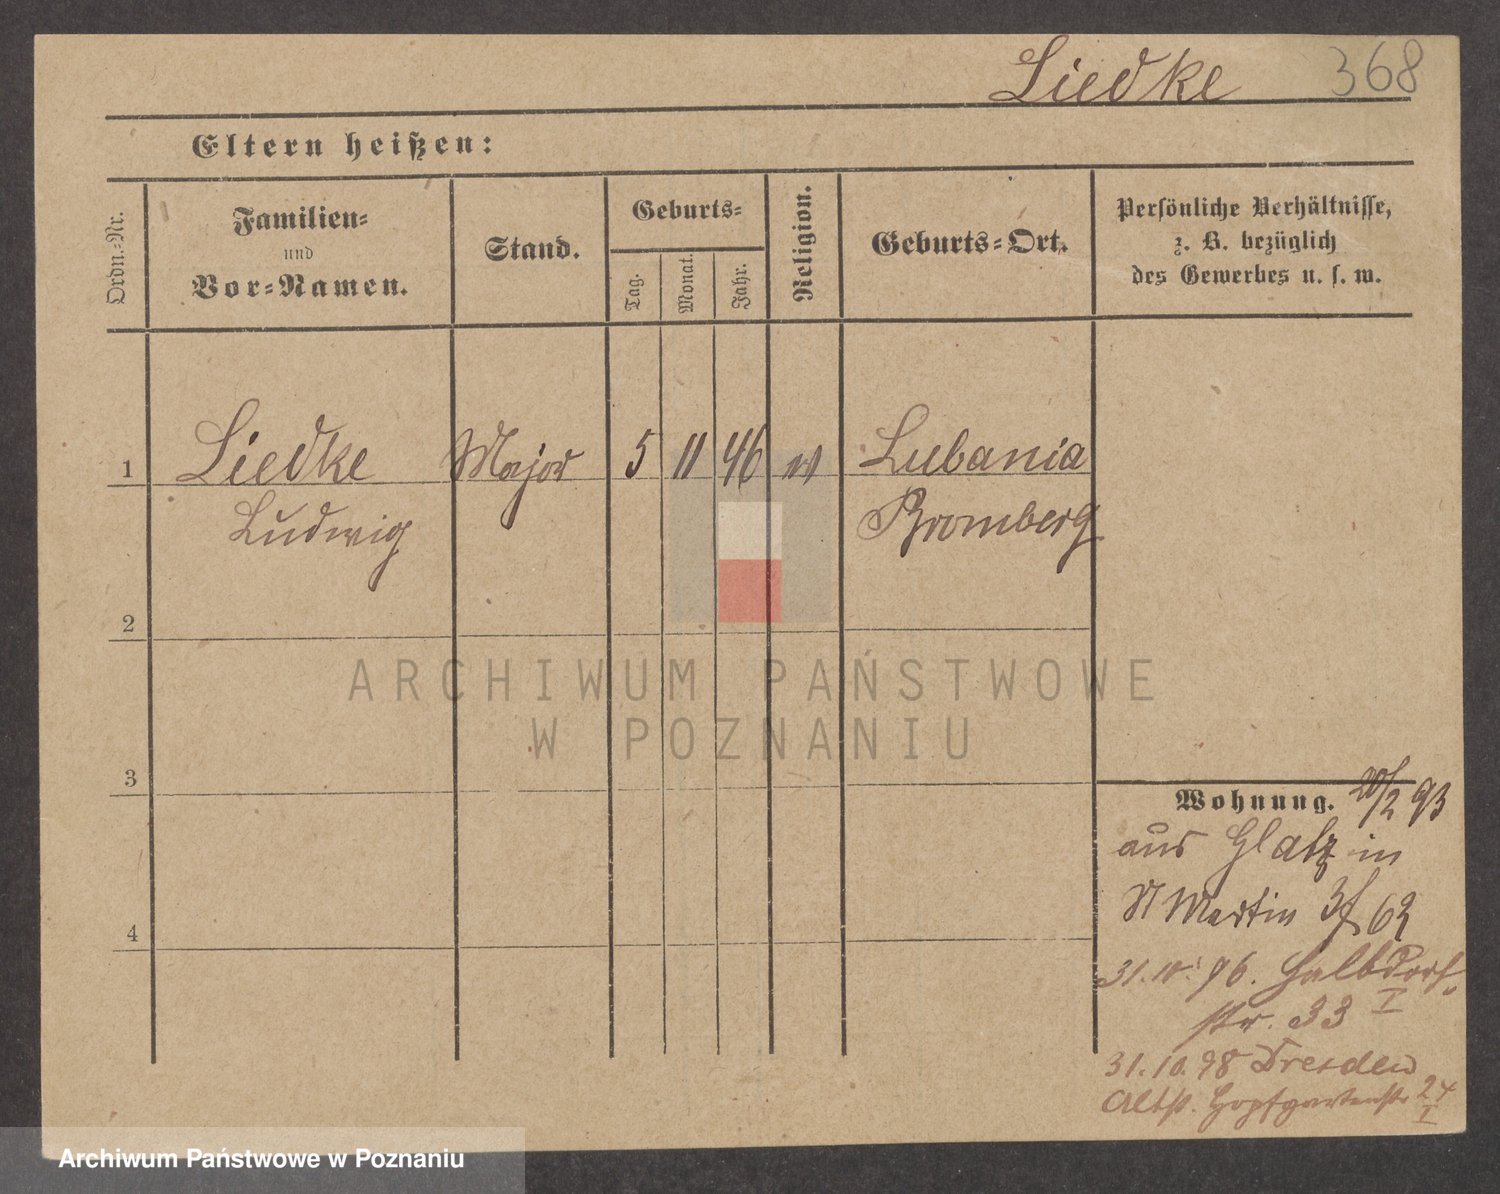 Liedke 368
Eltern heißen:
Ordn.-Nr.
Familien-
und
Vor-Namen.
Stand.
Geburts-
Tag.
Monat.
Jahr.
Religion.
Geburts-Ort.
Persönliche Verhältnisse,
z. B. bezüglich
des Gewerbes u. s. w.
1 Liedke Major 5 11 46 Lubania
Ludwig Bromberg
2
3
4
ARCHIWUM PAŃSTWOWE
W POZNANIU
Wohnung. 20/2 93
aus Glatz in
St Martin 62
31.10. 96. Halbdorf-
str. 33 I
31.10.98 Dresden
Altst. Hopfgartenstr 24
I
Archiwum Państwowe w Poznaniu